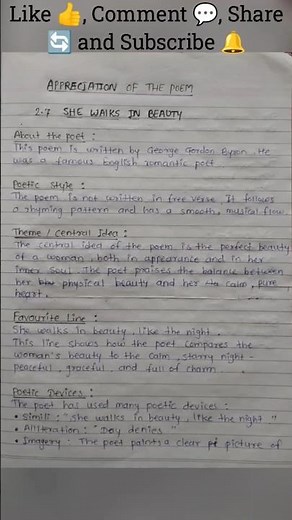 Like 👍, Comment 💬, Share
🔄 and Subscribe 🔔
APPRECIATION OF THE POEM
2.7 SHE WALKS IN BEAUTY
About the poet :
This poem is written by George Gordon Byron. He
was a famous English romantic poet
Poetic Style :
The poem is not written in free verse. It follows
a rhyming pattern and has a smooth, musical flow.
Theme / Central Idea :
The central idea of the poem is the perfect beauty
of a woman, both in appearance and in her
inner soul. The poet praises the balance between
her physical beauty and her calm, pure
heart.
Favourite Line :
She walks in beauty, like the night.
This line shows how the poet compares the
woman's beauty to the calm, starry night -
peaceful, graceful, and full of charm.
Poetic Devices :
The poet has used many poetic devices :
• Simili : "She walks in beauty, like the night"
• Alliteration : "Day denies"
• Imagery : The poet paints a clear picture of